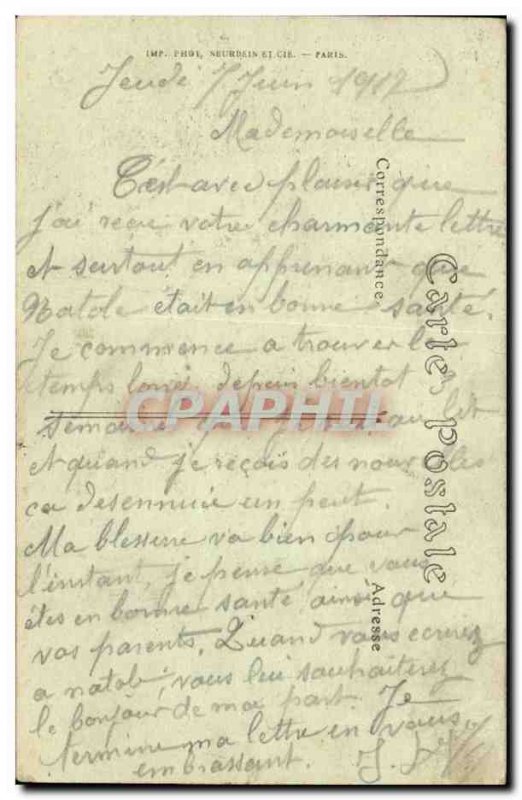 IMP. PHOT. NEURDEIN ET CIE. — PARIS.
Jeudi 7 Juin 1917
Mademoiselle
C'est avec plaisir que
j'ai recue votre charmante lettre
et surtout en apprenant que
Natole était en bonne santé.
Je commence a trouver le
temps long depuis bientot 3
semaines que je au lit
et quand je reçois des nouvelles
ca desennuie un peut.
Ma blessure va bien pour
l'instant, je pense que vous
êtes en bonne santé ainsi que
vos parents. Quand vous ecrirez
a natole, vous lui souhaiterez
le bonjour de ma part. Je
termine ma lettre en vous
embrassant.
Correspondance
Carte Postale
Adresse
CPAPHIL